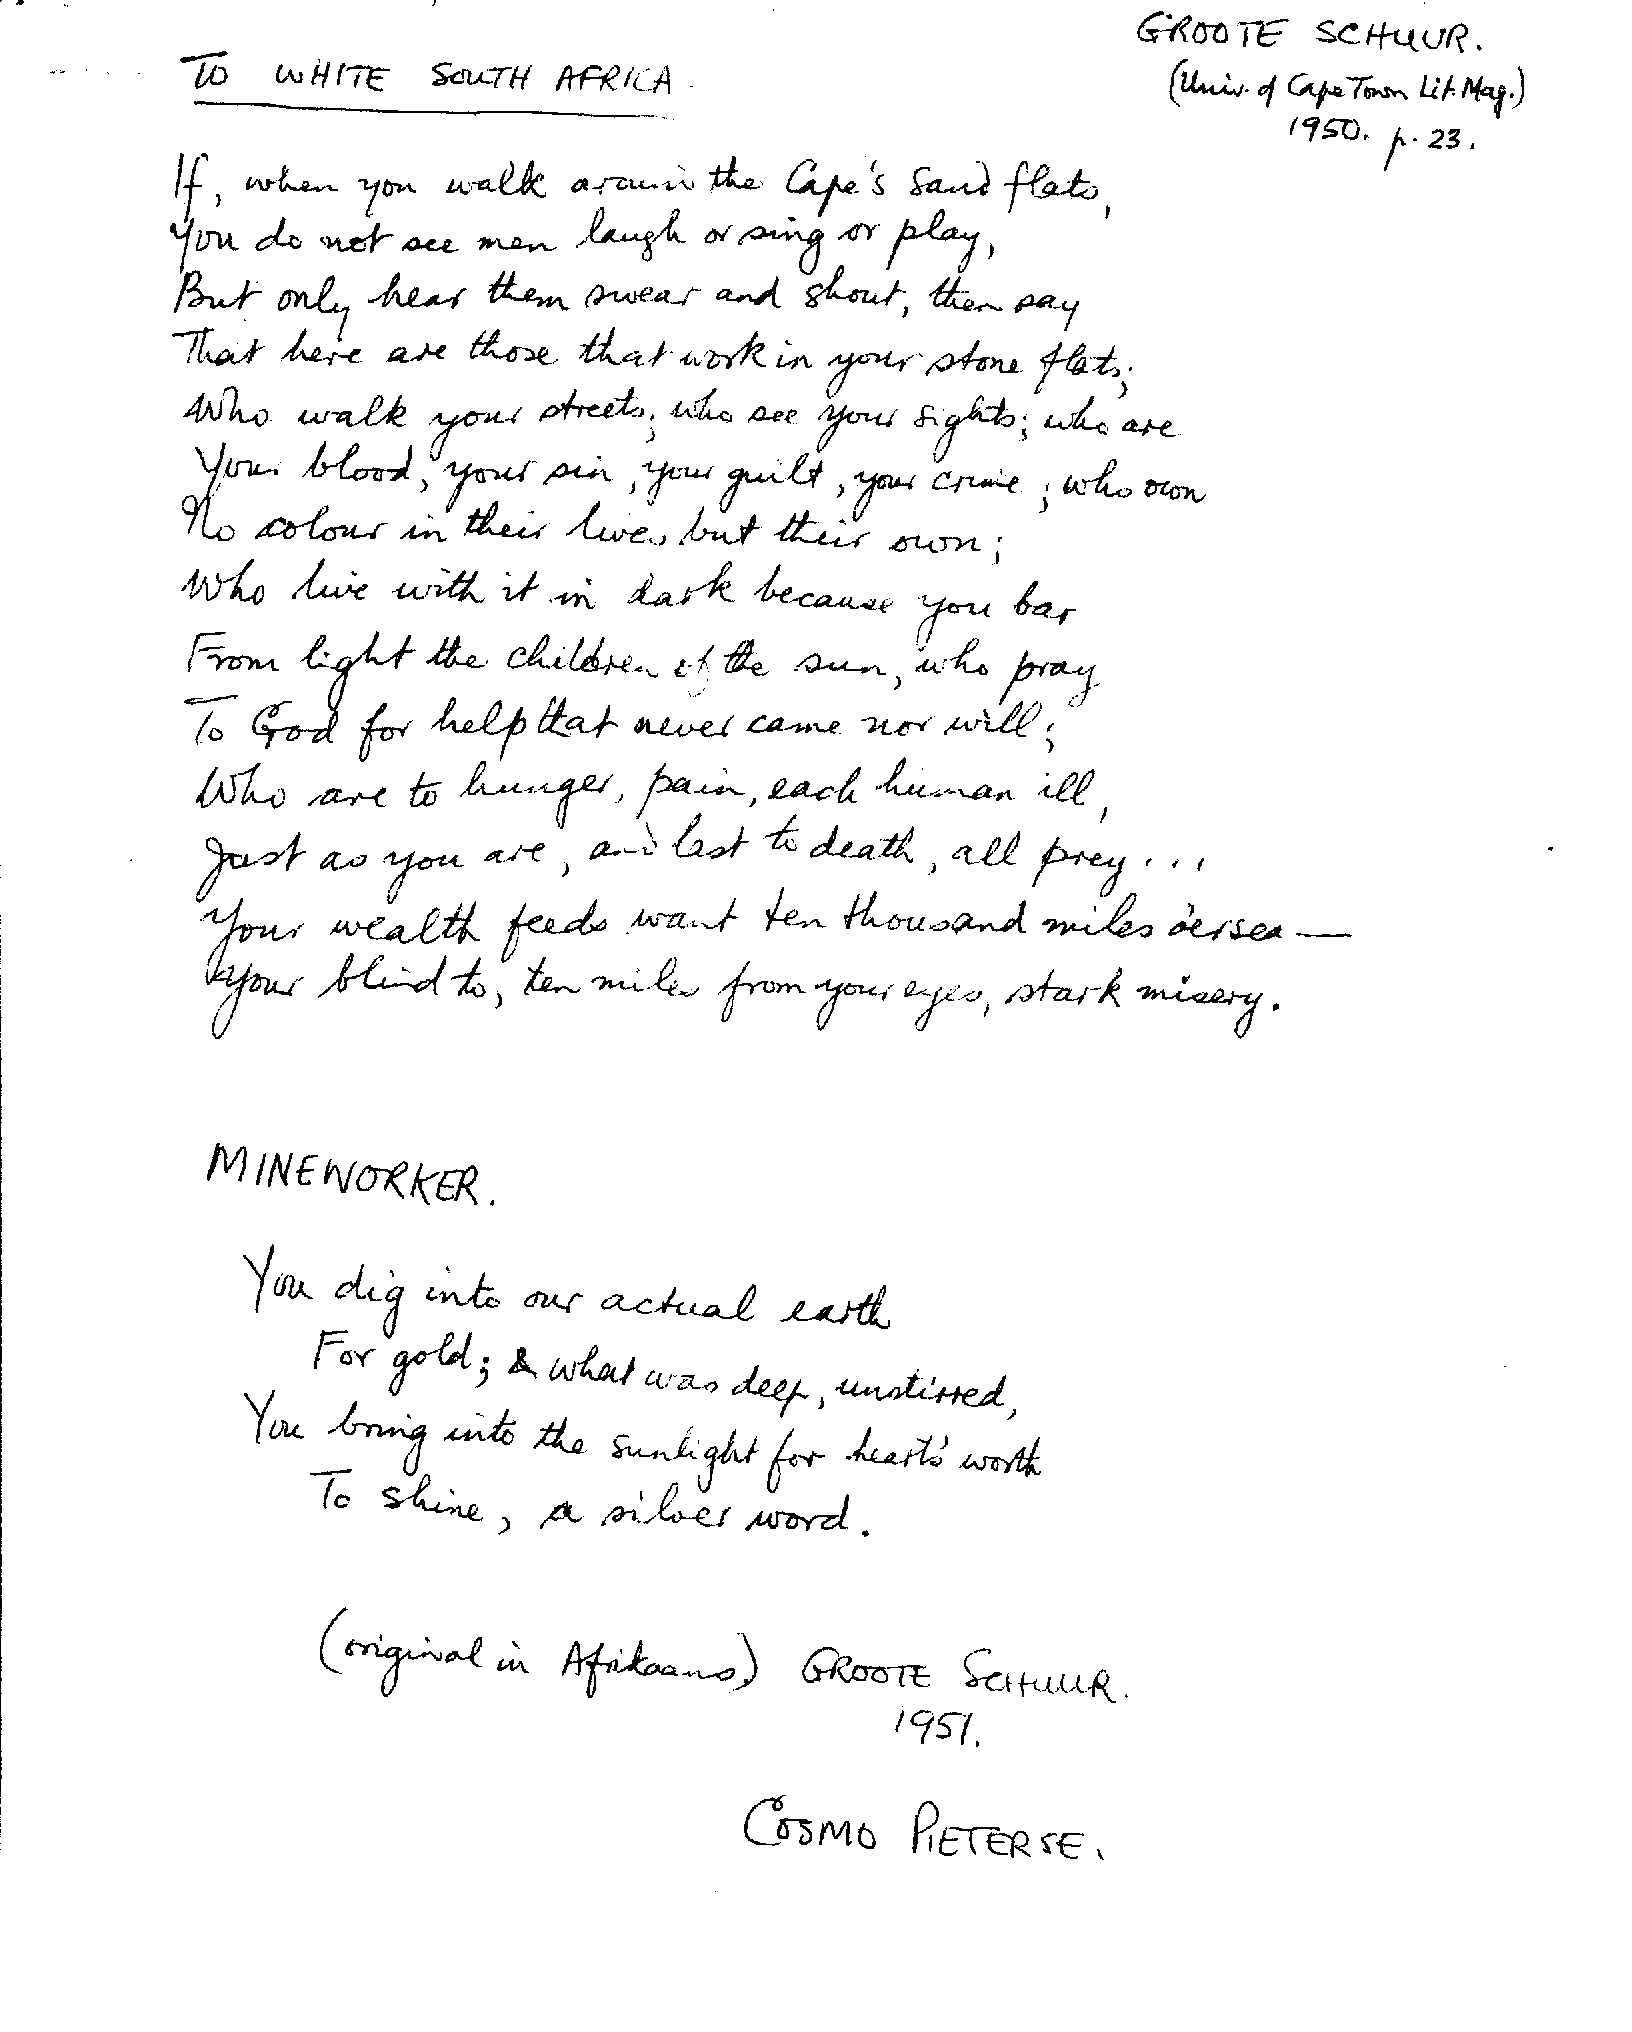 GROOTE SCHUUR.
(Univ. of Cape Town Lit. Mag.)
1950. p. 23.
TO WHITE SOUTH AFRICA.
If, when you walk around the Cape's Sand flats,
You do not see men laugh or sing or play,
But only hear them swear and shout, then say
That here are those that work in your stone flats;
Who walk your streets; who see your sights; who are
Your blood, your sin, your guilt, your crime; who own
No colour in their lives but their own;
Who live with it in dark because you bar
From light the children of the sun, who pray
To God for help that never came nor will;
Who are to hunger, pain, each human ill,
Just as you are, and last to death, all prey...
Your wealth feeds want ten thousand miles o'ersea—
Your blind to, ten miles from your eyes, stark misery.
MINEWORKER.
You dig into our actual earth
For gold; & what was deep, unstirred,
You bring into the sunlight for heart's worth
To shine, a silver word.
(original in Afrikaans) GROOTE SCHUUR.
1951.
COSMO PIETERSE.